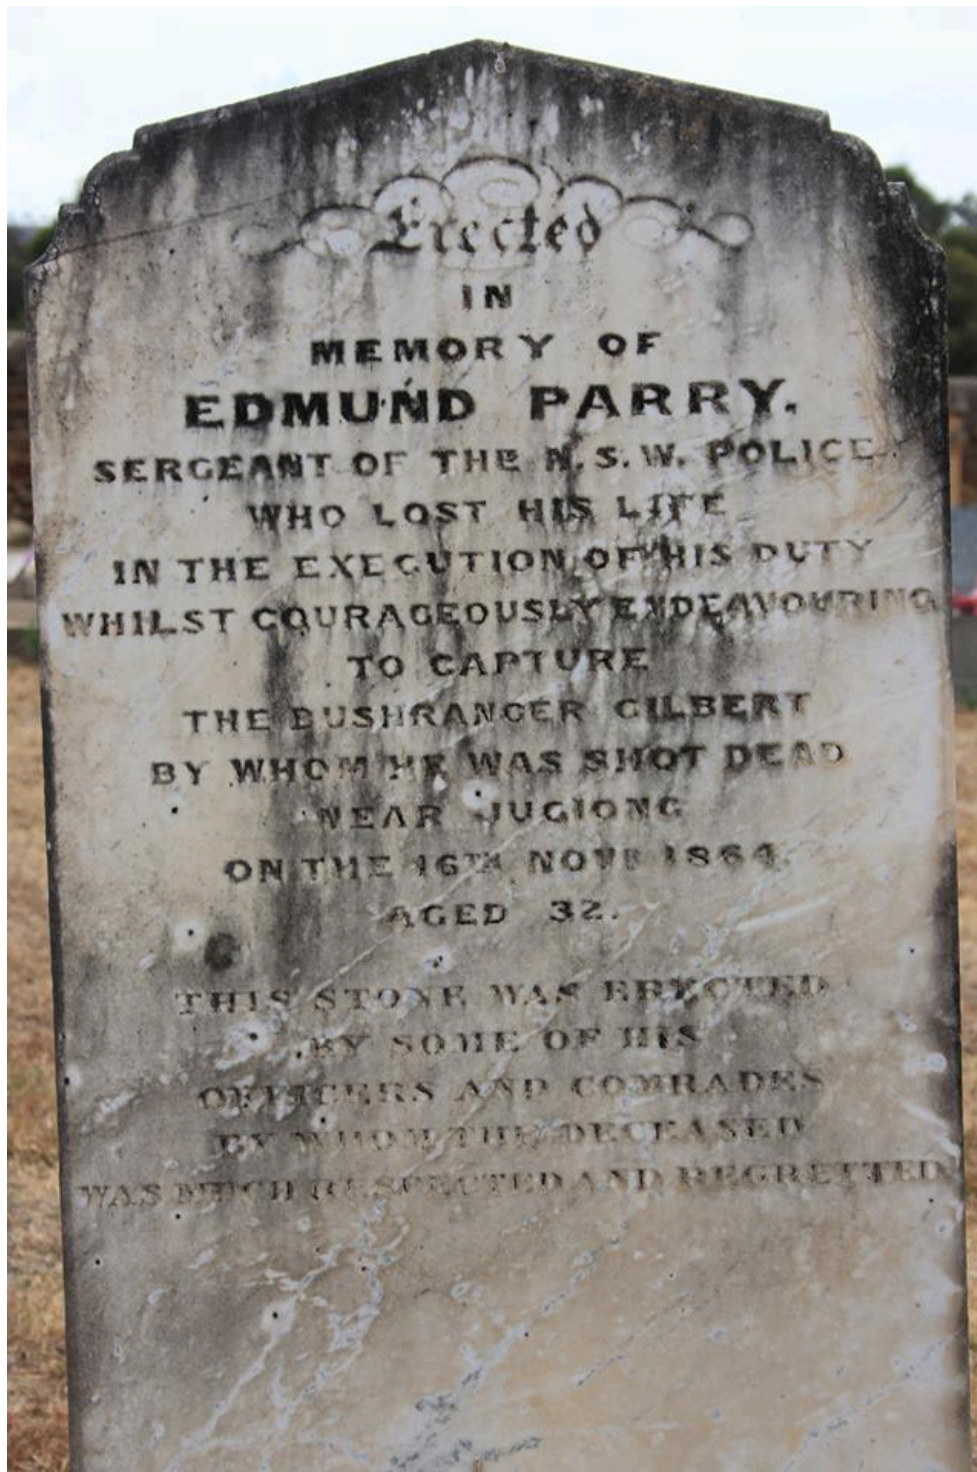 Erected
IN
MEMORY OF
EDMUND PARRY.
SERGEANT OF THE N.S.W. POLICE
WHO LOST HIS LIFE
IN THE EXECUTION OF HIS DUTY
WHILST COURAGEOUSLY ENDEAVOURING
TO CAPTURE
THE BUSHRANGER GILBERT
BY WHOM HE WAS SHOT DEAD
NEAR JUGIONG
ON THE 16TH NOVR 1864.
AGED 32.
THIS STONE WAS ERECTED
BY SOME OF HIS
OFFICERS AND COMRADES
BY WHOM THE DECEASED
WAS MUCH RESPECTED AND REGRETTED